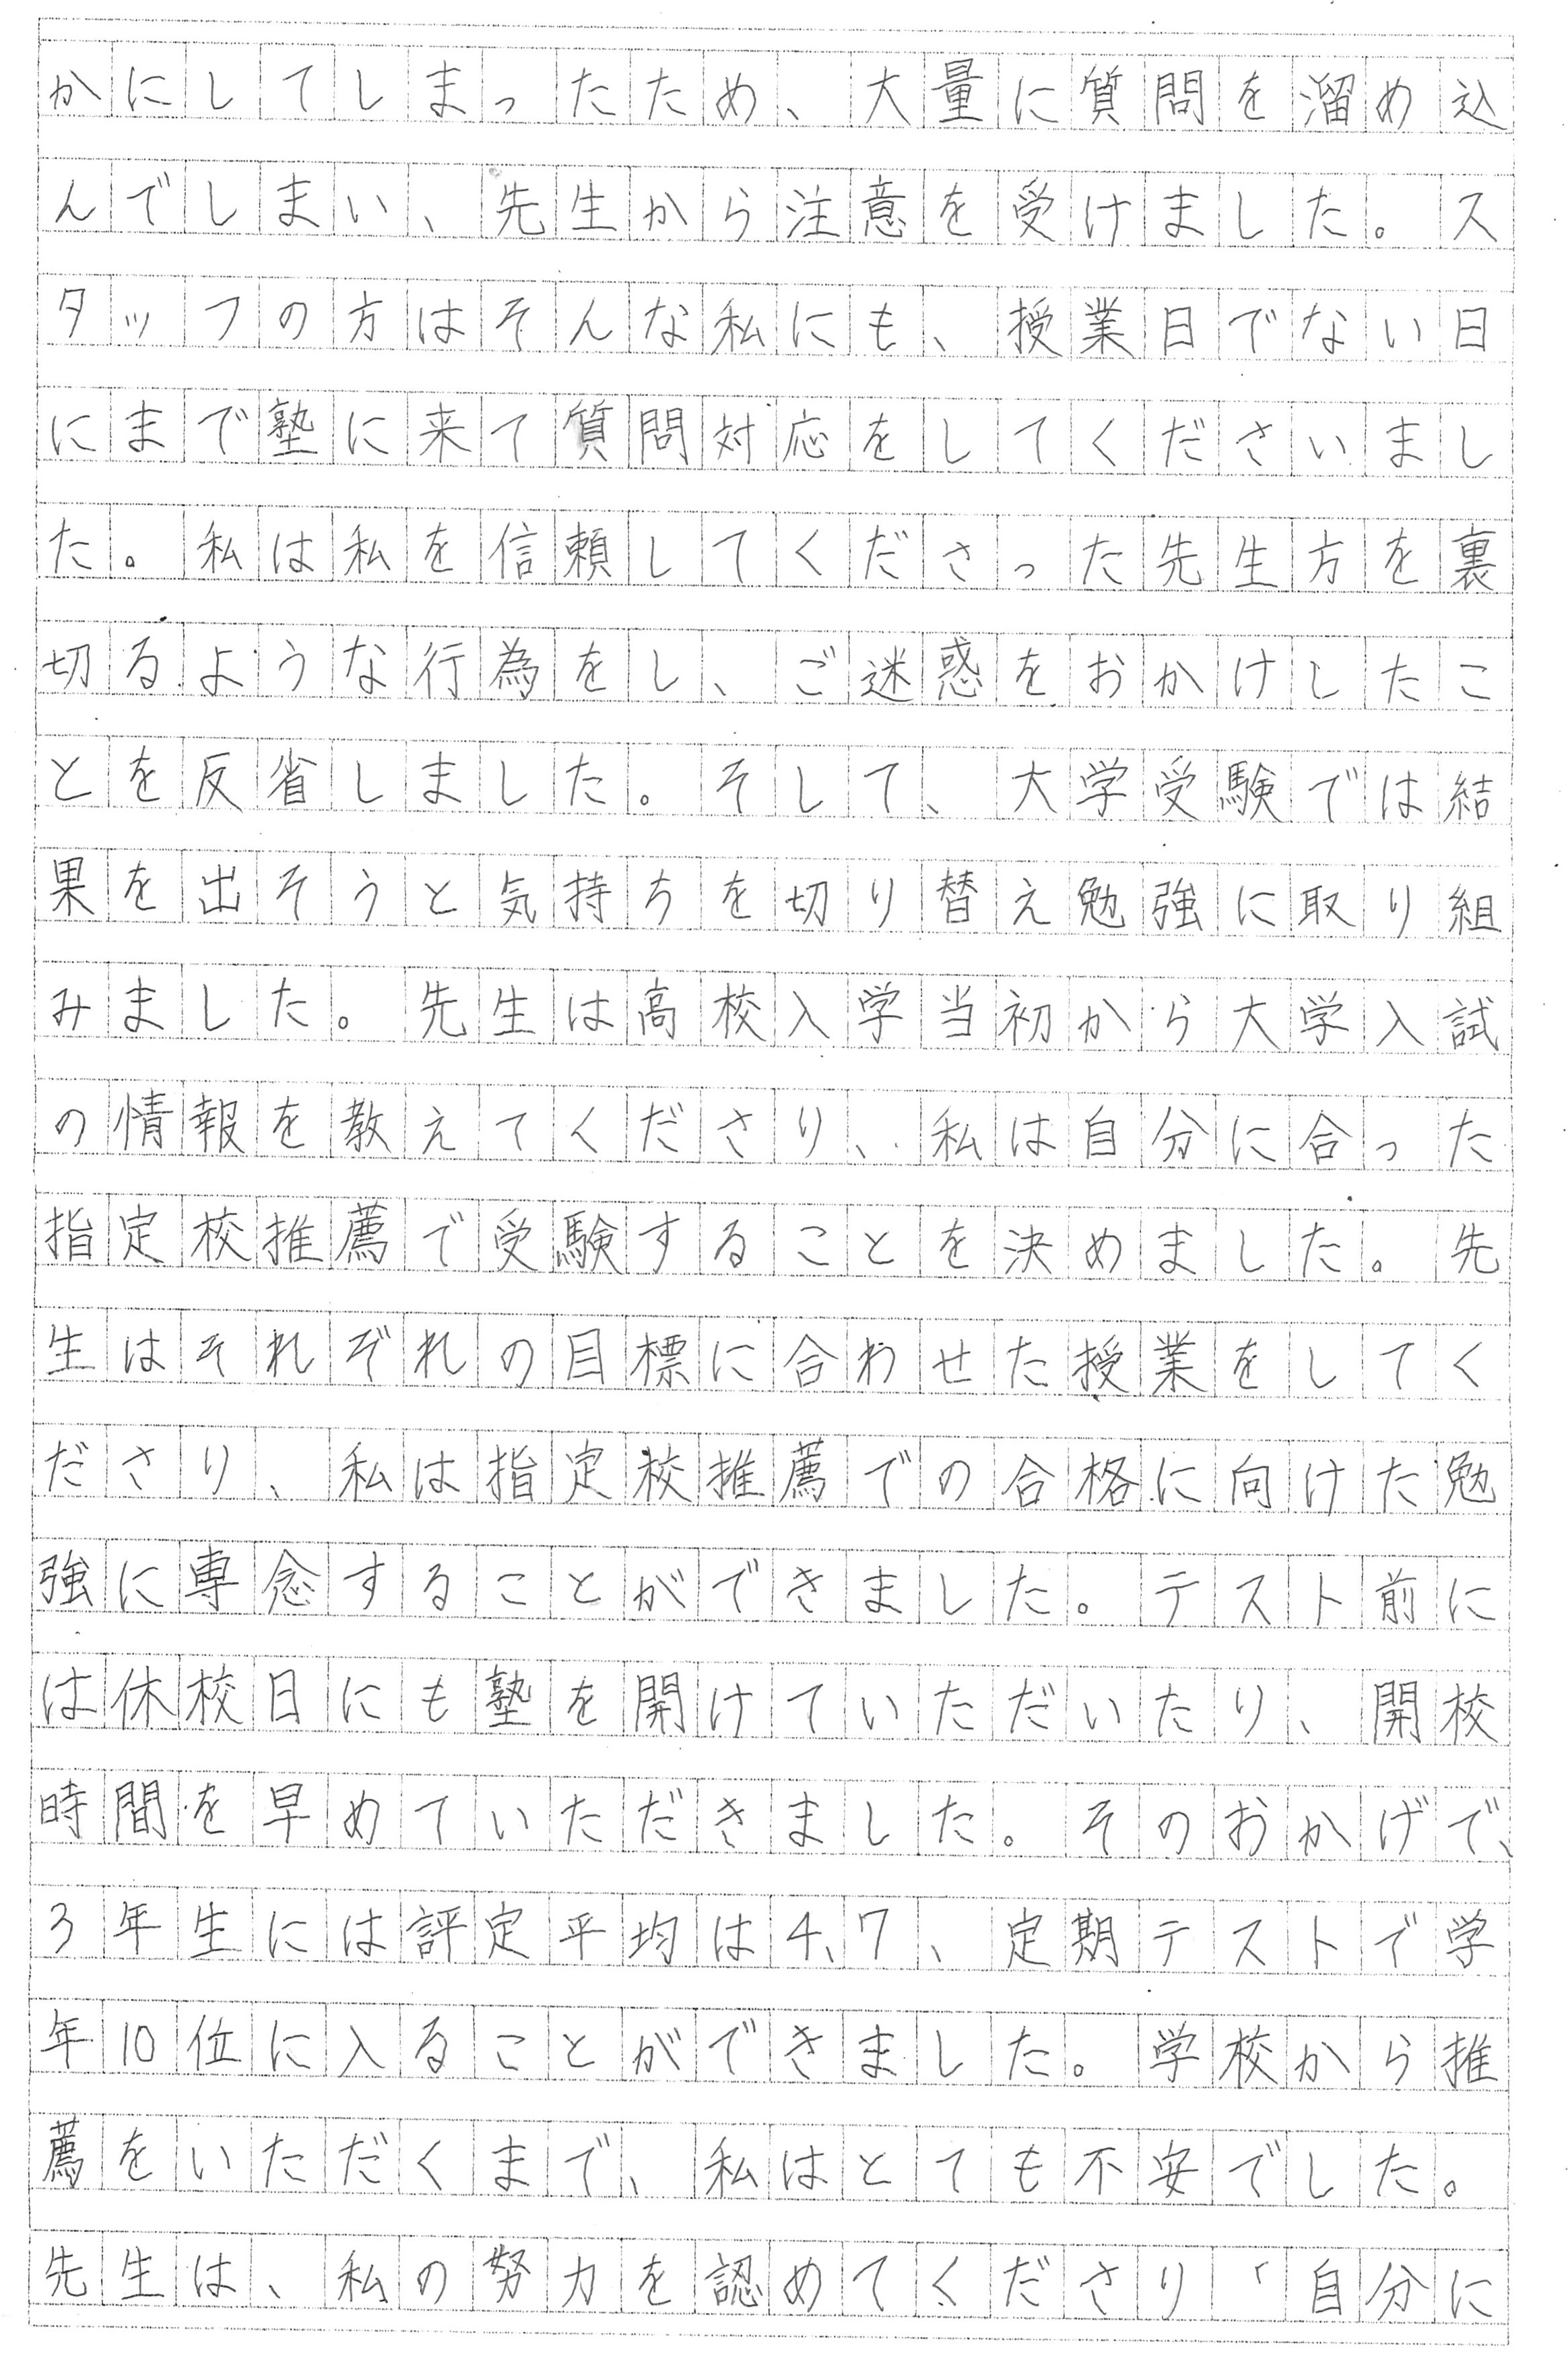 かにしてしまったため、大量に質問を溜め込
んでしまい、先生から注意を受けました。ス
タッフの方はそんな私にも、授業日でない日
にまで塾に来て質問対応をしてくださいまし
た。私は私を信頼してくださった先生方を裏
切るような行為をし、ご迷惑をおかけしたこ
とを反省しました。そして、大学受験では結
果を出そうと気持ちを切り替え勉強に取り組
みました。先生は高校入学当初から大学入試
の情報を教えてくださり、私は自分に合った
指定校推薦で受験することを決めました。先
生はそれぞれの目標に合わせた授業をしてく
ださり、私は指定校推薦での合格に向けた勉
強に専念することができました。テスト前に
は休校日にも塾を開けていただいたり、開校
時間を早めていただきました。そのおかげで、
3年生には評定平均は4、7、定期テストで学
年10位に入ることができました。学校から推
薦をいただくまで、私はとても不安でした。
先生は、私の努力を認めてくださり「自分に